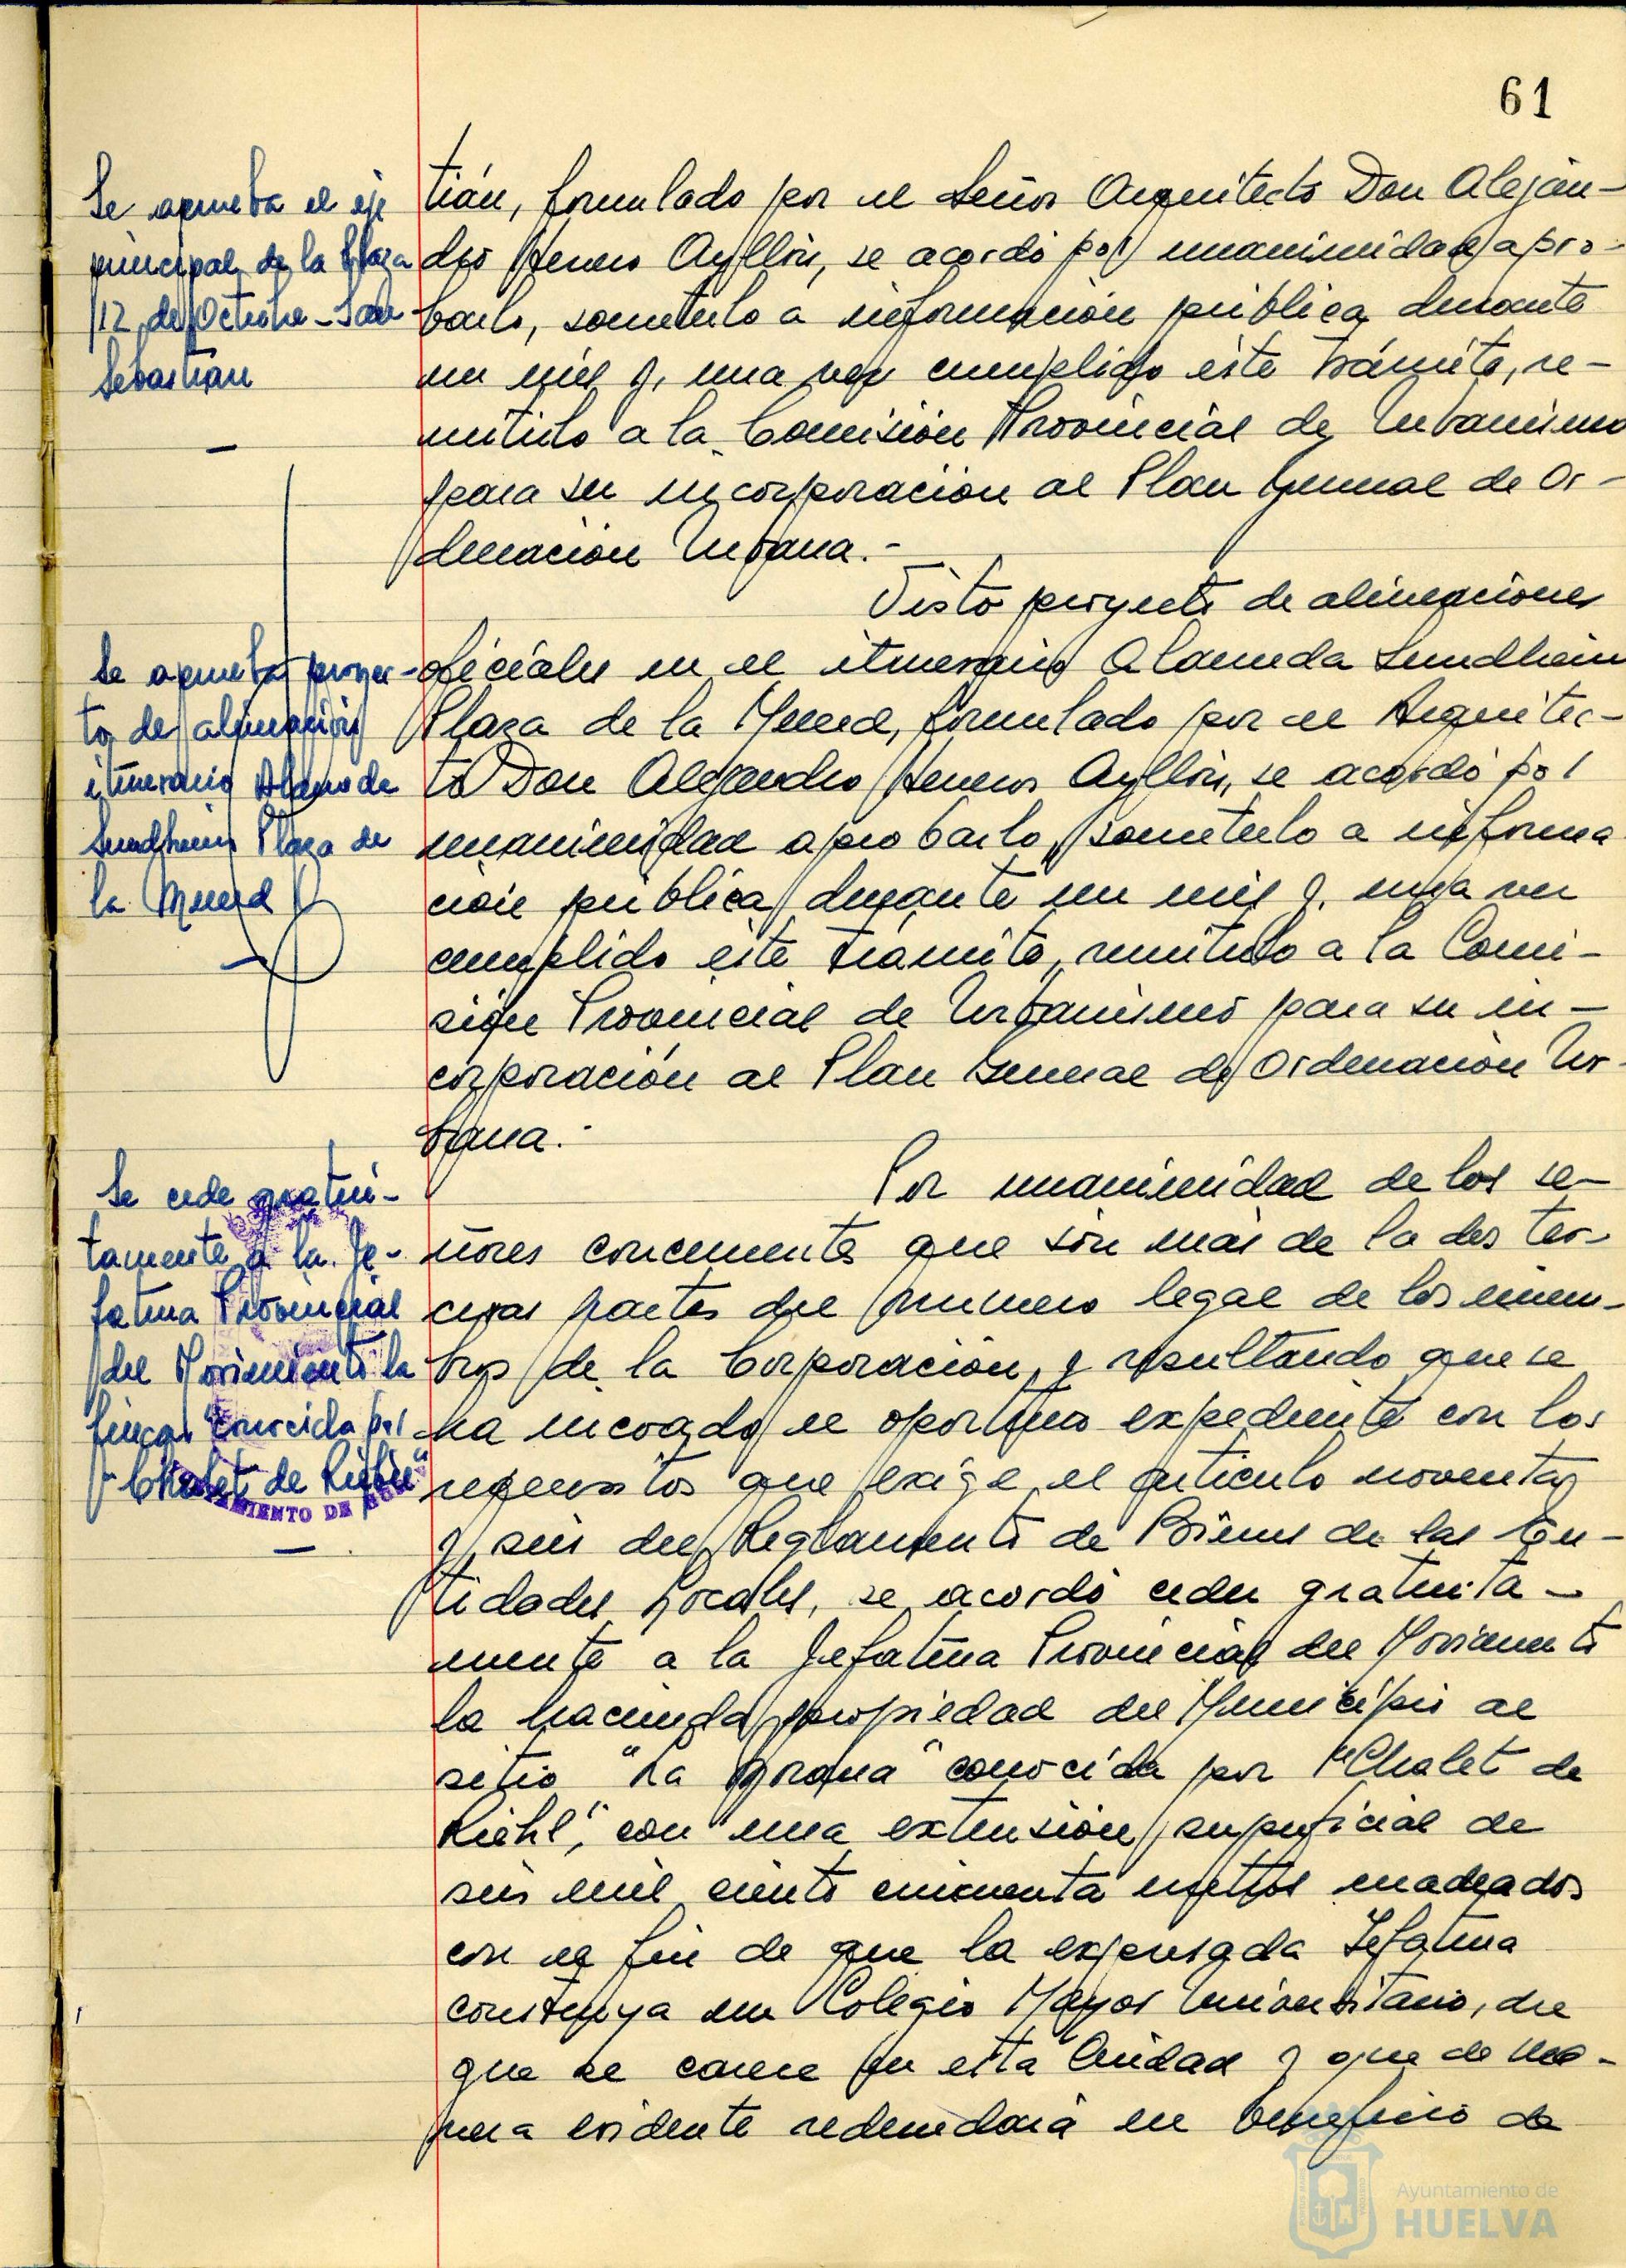 61
Se aprueba el eje
principal de la Plaza
12 de Octubre - San
Sebastián
tián, formulado por el Señor Arquitecto Don Aleján-
dro Herrero Ayllón, se acordó por unanimidad apro-
barlo, someterlo a información pública durante
un mes y, una vez cumplido éste trámite, re-
mitirlo a la Comisión Provincial de Urbanismo
para su incorporación al Plan General de Or-
denación Urbana.-
Visto proyecto de alineaciones
Se aprueba proyec-
to de alineación
itinerario Alameda
Sundheim Plaza de
la Merced
oficiales en el itinerario Alameda Sundheim
Plaza de la Merced, formulado por el Arquitec-
to Don Alejandro Herrero Ayllón, se acordó por
unanimidad aprobarlo, someterlo a informa
ción pública durante un mes y, una vez
cumplido éste trámite, remitirlo a la Comi-
sión Provincial de Urbanismo para su in-
corporación al Plan General de Ordenación Ur-
bana.-
Se cede gratui-
tamente a la Je-
fatura Provincial
del Movimiento la
finca conocida por
"Chalet de Riehl"
AYUNTAMIENTO DE HUELVA
Por unanimidad de los se-
ñores concurrentes que son más de la dos ter-
ceras partes del número legal de los miem-
bros de la Corporación, y resultando que se
ha incoado el oportuno expediente con los
requisitos que exige el artículo noventa
y seis del Reglamento de Bienes de las En-
tidades Locales, se acordó ceder gratuita-
mente a la Jefatura Provincial del Movimiento
la hacienda propiedad del Municipio al
sitio "La Joya" conocida por "Chalet de
Riehl", con una extensión superficial de
seis mil ciento cincuenta metros cuadrados
con el fin de que la expresada Jefatura
construya un Colegio Mayor Universitario, del
que se carece en esta Ciudad y que de ma-
nera evidente redundará en beneficio de
Ayuntamiento de
HUELVA